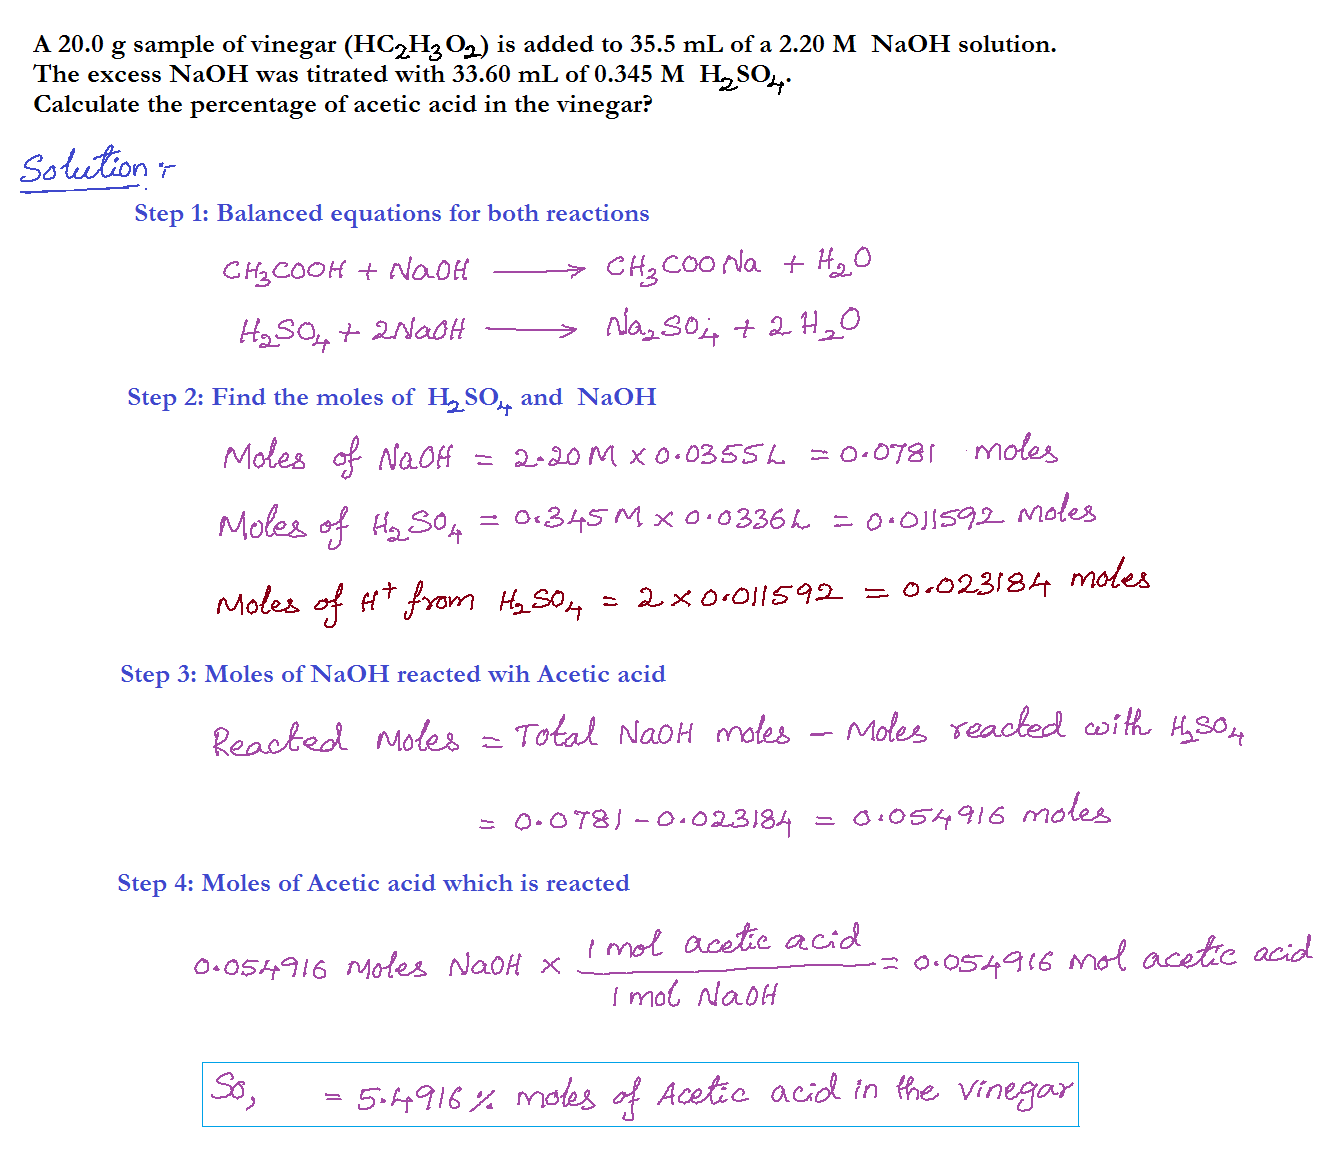 A 20.0 g sample of vinegar (HC₂H₃O₂) is added to 35.5 mL of a 2.20 M NaOH solution.
The excess NaOH was titrated with 33.60 mL of 0.345 M H₂SO₄.
Calculate the percentage of acetic acid in the vinegar?
Solution :-
Step 1: Balanced equations for both reactions
CH₃COOH + NaOH ⟶ CH₃COONa + H₂O
H₂SO₄ + 2NaOH ⟶ Na₂SO₄ + 2H₂O
Step 2: Find the moles of H₂SO₄ and NaOH
Moles of NaOH = 2.20 M x 0.0355L = 0.0781 moles
Moles of H₂SO₄ = 0.345 M x 0.0336L = 0.011592 moles
Moles of H⁺ from H₂SO₄ = 2 x 0.011592 = 0.023184 moles
Step 3: Moles of NaOH reacted wih Acetic acid
Reacted Moles = Total NaOH moles – Moles reacted with H₂SO₄
= 0.0781 - 0.023184 = 0.054916 moles
Step 4: Moles of Acetic acid which is reacted
0.054916 Moles NaOH x 1 mol acetic acid / 1 mol NaOH = 0.054916 mol acetic acid
So, = 5.4916 % moles of Acetic acid in the vinegar